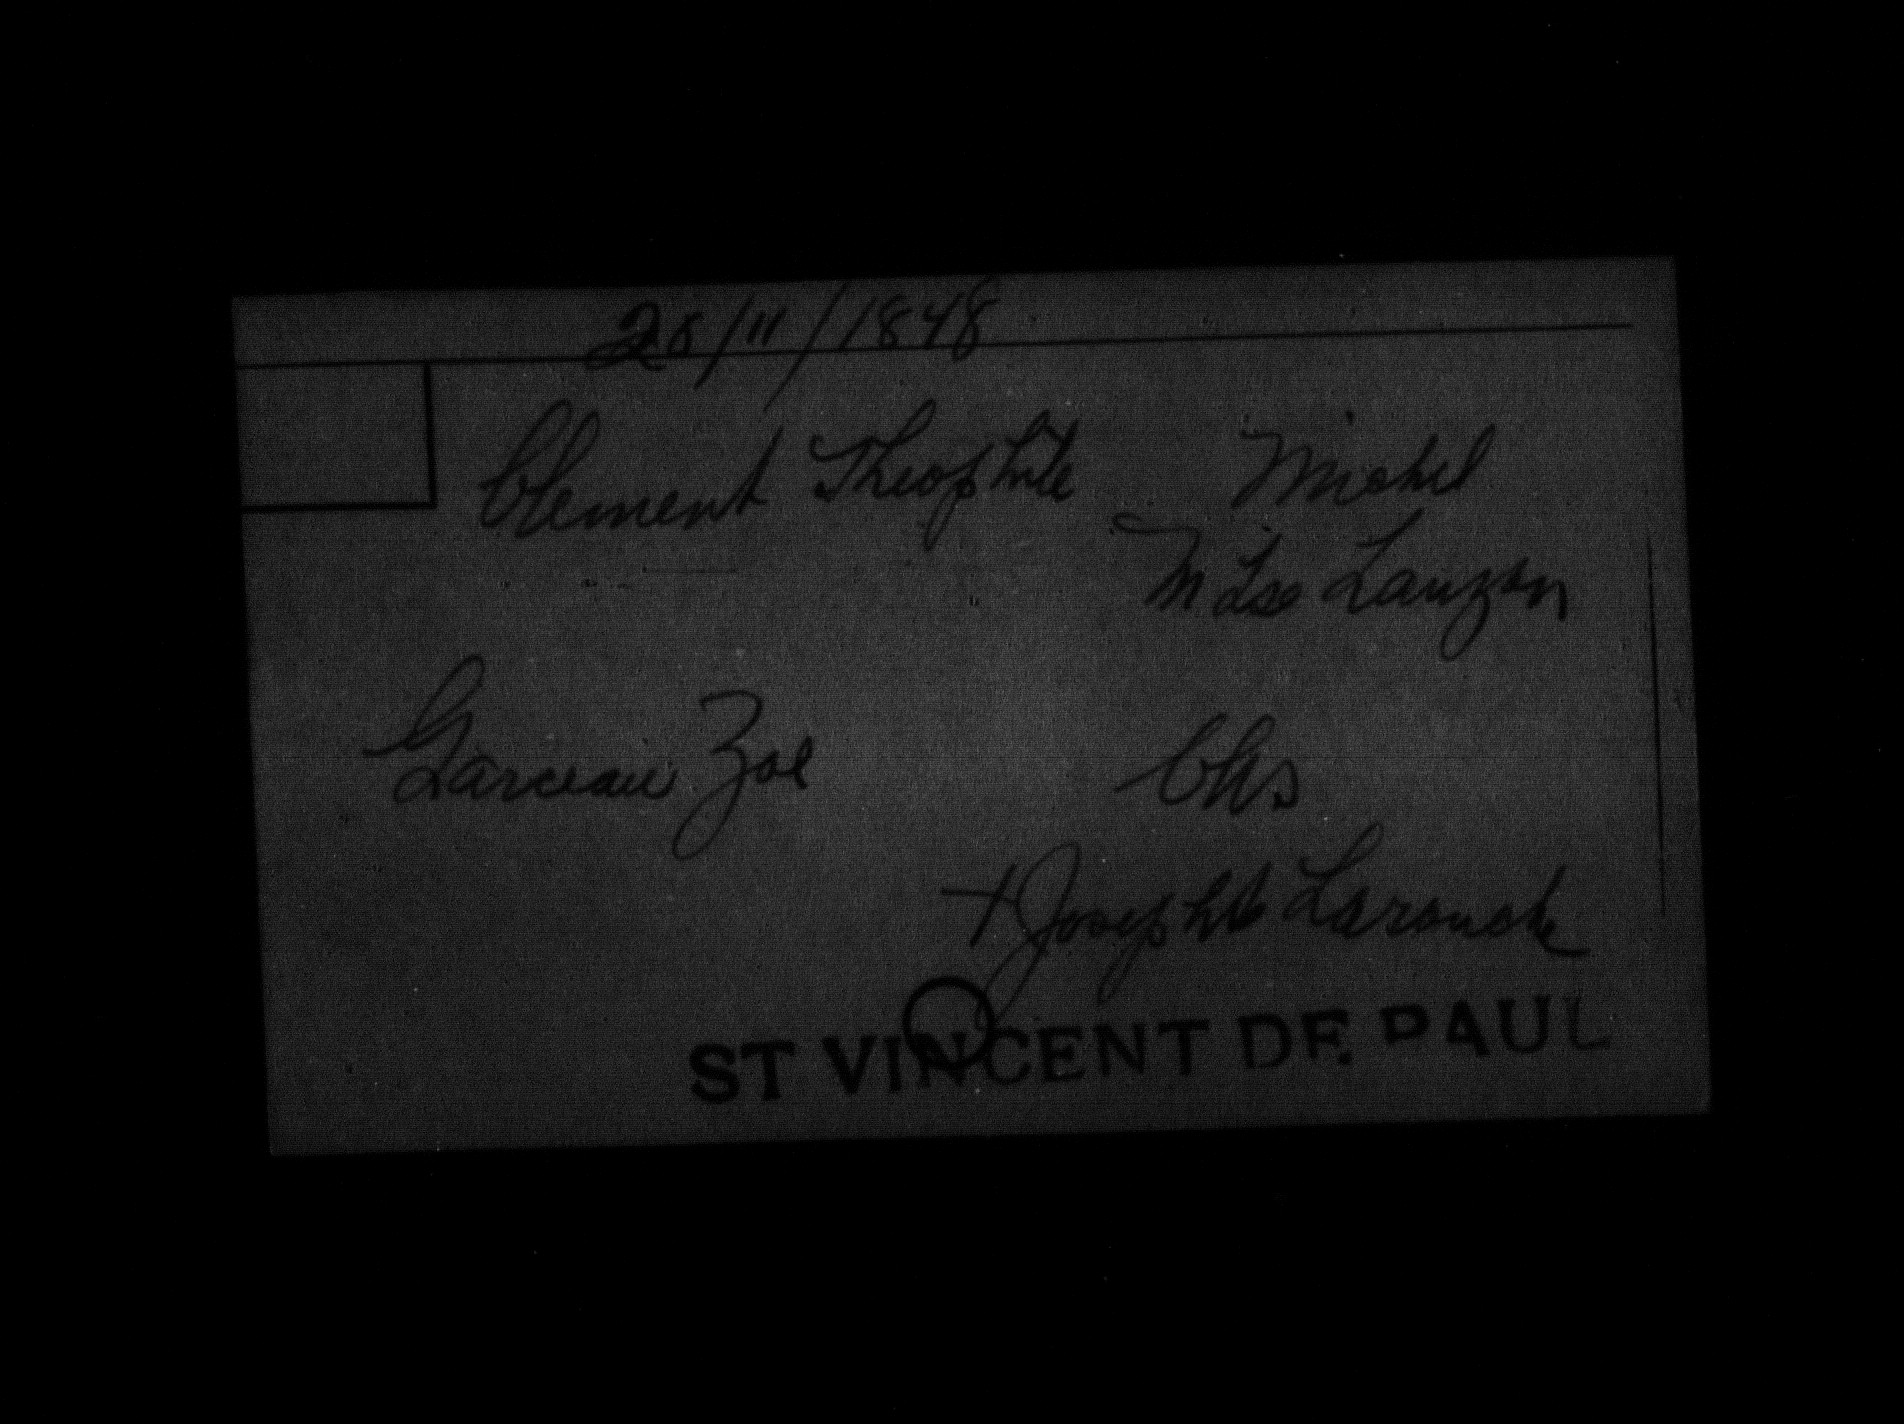 28/11/1848
Clement Theophile Michel
M Lse Lauzon
Garceau Zoe Chs
+ Josephte Larouche
ST VINCENT DE PAUL